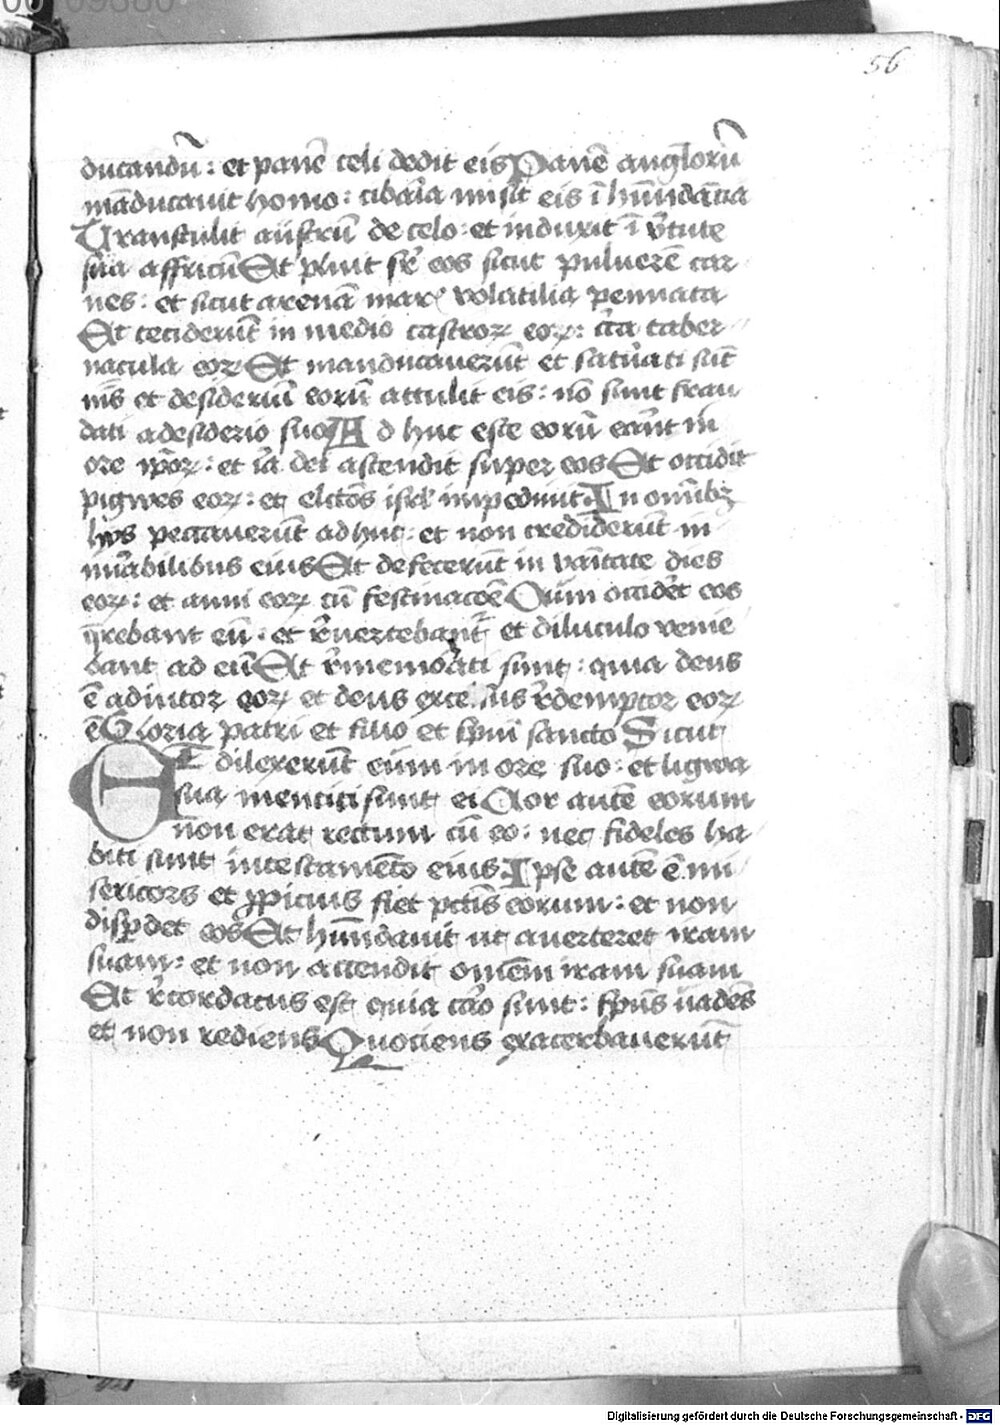 56
ducandū: et panē celi dedit eis Panē angloꝝ
māducauit homo: cibaīa misit eis ī hūndācia
Transtulit austrū de celo: et induxit ī v̓tute
sua affricū Et pluit sr̄ eos sicut puluerē car
nes: et sicut arenā mar̄ volatilia pennata
Et ceciderūt in medio castroꝝ eoꝝ: c̄ca taber
nacula eoꝝ Et manducauerūt et satūati sūt
nīs et desideriū eorū attulit eis: nō sunt frau
dati a desiderio suo Ad huc esce eorū erāt in
ore ip̄oꝝ: et īa dei ascendit super eos Et occidit
pigwes eoꝝ: et elc̄tos isrl̄ inpediuit In omībꝫ
hijs peccauerūt ad huc: et non crediderūt in
mīabilibus eius Et defecerūt in vaītate dies
eoꝝ: et anni eoꝝ cū festinacōe Qūm occidēt eos
q̄rebant eū: et r̄uertebantˀ et diluculo venie
bant ad eū Et r̄memōati sunt: quia deus
ē adiutor eoꝝ et deus excelsus r̄demptor eoꝝ
ē Gloria patri et filio et sp̄ui sancto Sicut
Et dilexerūt eum in ore suo: et ligwa
sua mentiti sunt ei Cor autē eorum
non erat rectum cū eo: nec fideles ha
biti sunt in testamēto eius Ipse autē ē mi
sericors et ꝓpicius fiet pctīs eorum: et non
disꝑdet eos Et hūndauit ut auerteret iram
suam: et non accendit omēm iram suam
Et r̄cordatus est quia cāo sunt: sp̄us uadēs
et non rediens Quociens exacerbauerūt
Digitalisierung gefördert durch die Deutsche Forschungsgemeinschaft - DFG